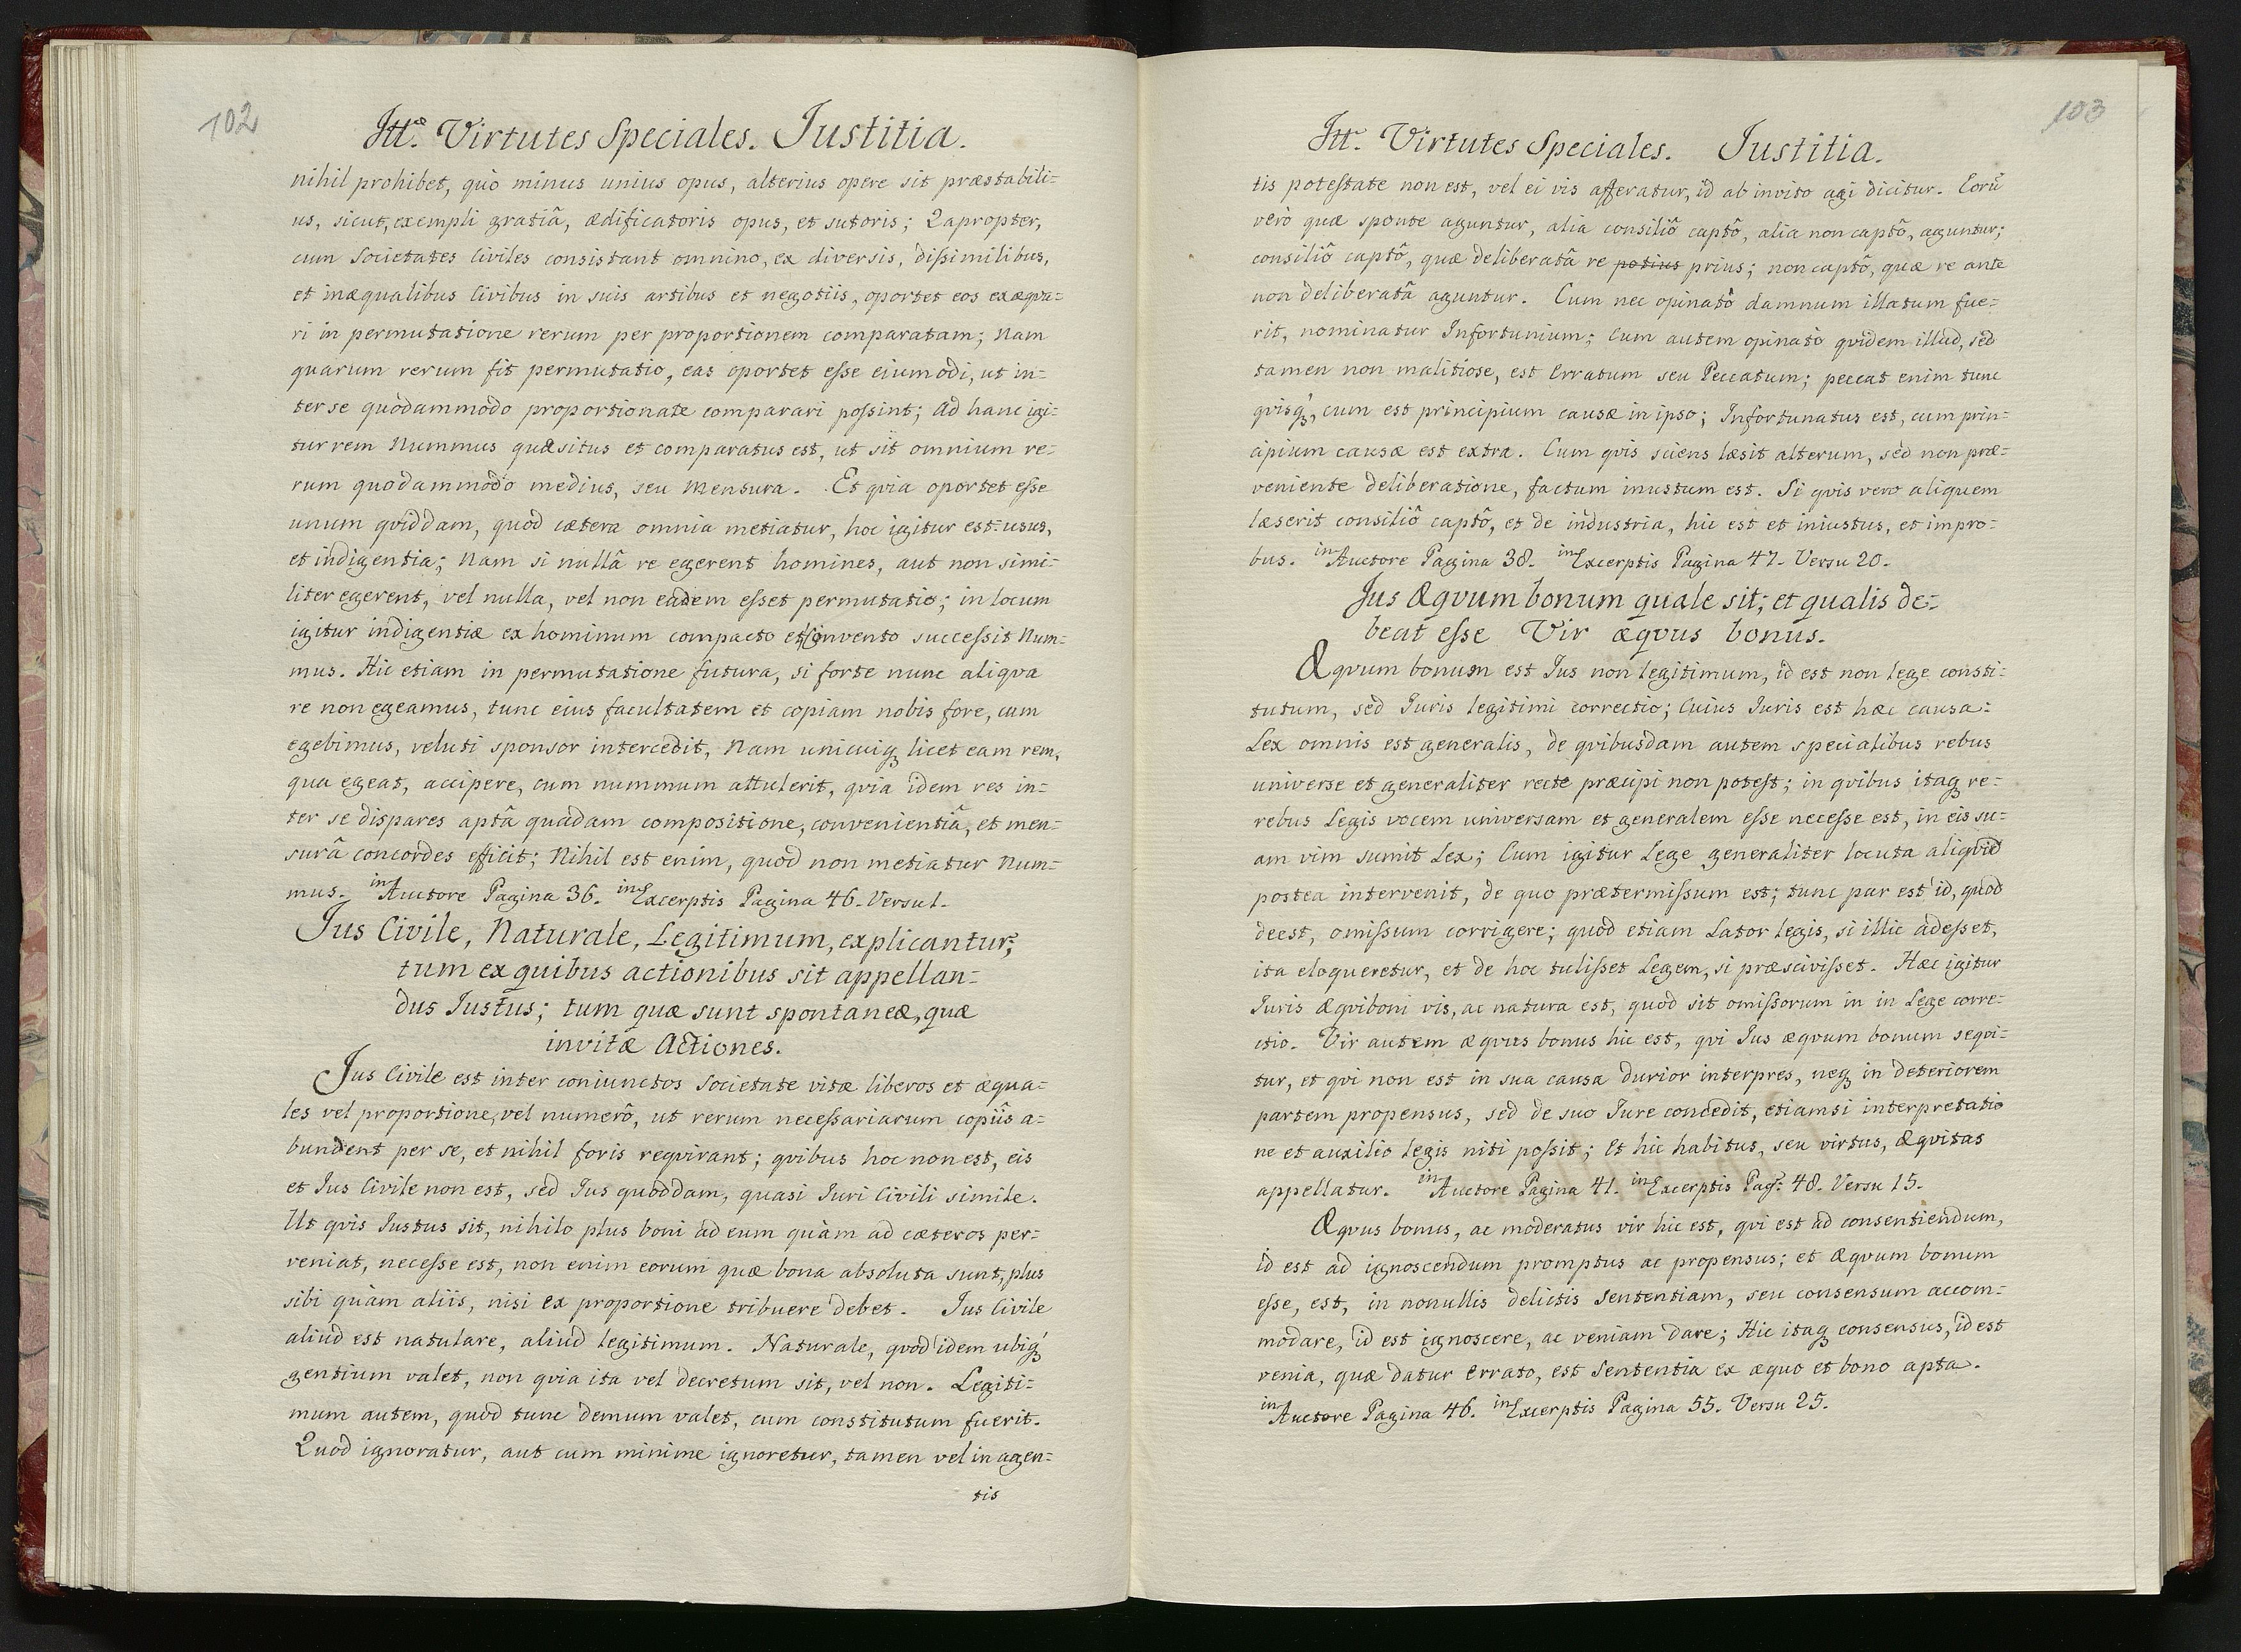 102
Itt. Virtutes Speciales. Iustitia.
nihil prohibet, quò minus unius opus, alterius opere sit præstabili=
us, sicut, exempli gratiâ, ædificatoris opus, et sutoris; Qapropter,
cum Societates Civiles consistant omnino, ex diversis, dissimilibus,
et inæqualibus Civibus in suis artibus et negotiis, oportet eos exæqva=
ri in permutatione rerum per proportionem comparatam; Nam
quarum rerum fit permutatio, eas oportet esse eiumodi, ut in=
ter se quodammodo proportionate comparari possint; Ad hanc igi=
tur rem Nummus quæsitus et comparatus est, ut sit omnium re=
rum quodammodo medius, seu Mensura. Et qvia oportet esse
unum qviddam, quod cætera omnia metiatur, hoc igitur est usus,
et indigentia; Nam si nullâ re egerent homines, aut non simi=
liter egerent, vel nulla, vel non eadem esset permutatio; in locum
igitur indigentiæ ex hominum compacto et Convento successit Num=
mus. Hic etiam in permutatione futura, si forte nunc aliqva
re non egeamus, tunc eius facultatem et copiam nobis fore, cum
egebimus, veluti sponsor intercedit, Nam unicuiqꝫ licet eam rem,
qua egeat, accipere, cum nummum attulerit, qvia idem res in=
ter se dispares aptâ quadam compositione, convenientiâ, et men=
surâ concordes efficit; Nihil est enim, quod non metiatur Num=
mus. in Auctore Pagina 36. in Excerptis Pagina 46. Versu 1.
Jus Civile, Naturale, Legitimum, explicantur;
tum ex quibus actionibus sit appellan=
dus Iustus; tum quæ sunt spontaneæ, quæ
invitæ Actiones.
Jus Civile est inter coniunctos societate vitæ liberos et æqua=
les vel proportione, vel numerô, ut rerum necessariarum copiis a=
bundent per se, et nihil foris reqvirant; qvibus hoc non est, eis
et Ius Civile non est, sed Ius quoddam, quasi Iuri Civili simile.
Ut qvis Iustus sit, nihilo plus boni ad eum quàm ad cæteros per=
veniat, necesse est, non enim eorum quæ bona absoluta sunt, plus
sibi quàm aliis, nisi ex proportione tribuere debet. Ius Civile
aliud est natulare, aliud legitimum. Naturale, qvod idem ubiqꝫ
gentium valet, non qvia ita vel decretum sit, vel non. Legiti=
mum autem, quod tunc demum valet, cum constitutum fuerit.
Quod ignoratur, aut cum minime ignoretur, tamen vel in agen=
tis
103
Itt. Virtutes Speciales. Iustitia.
tis potestate non est, vel ei vis afferatur, id ab invito agi dicitur. Eorũ
verò quæ sponte aguntur, alia consiliô captô, alia non captô, aguntur;
consiliô captô, quæ deliberatâ re potius prius; non captô, quæ re ante
non deliberatâ aguntur. Cum nec opinatô damnum illatum fue=
rit, nominatur Infortunium; Cum autem opinatò qvidem illud, sed
tamen non malitiose, est Erratum seu Peccatum; peccat enim tunc
qvisqꝫ, cum est principium causæ in ipso; Infortunatus est, cum prin=
cipium causæ est extra. Cum qvis sciens læsit alterum, sed non præ=
veniente deliberatione, factum iniustum est. Si qvis vero aliquem
læserit consiliô captô, et de industria, hic est et iniustus, et impro=
bus. in Auctore Pagina 38. in Excerptis Pagina 47. Versu 20.
Jus Æqvum bonum quale sit; et qualis de=
beat esse Vir æqvus bonus.
Æqvum bonum est Ius non legitimum, id est non lege consti=
tutum, sed Iuris legitimi correctio; Cuius Iuris est hæc causa:
Lex omnis est generalis, de qvibusdam autem specialibus rebus
universe et generaliter recte præcipi non potest; in qvibus itaqꝫ re=
rebus Legis vocem universam et generalem esse necesse est, in eis su=
am vim sumit Lex; Cum igitur Lege generaliter locuta aliqvid
postea intervenit, de quo prætermissum est; tunc par est id, quod
deest, omissum corrigere; quod etiam Lator legis, si illic adesset,
ita eloqueretur, et de hoc tulisset Legem, si præscivisset. Hæc igitur
Iuris Æqviboni vis, ac natura est, quod sit omissorum in in Lege corre=
ctio. Vir autem æqvus bonus hic est, qvi Ius æqvum bonum seqvi=
tur, et qvi non est in sua causa durior interpres, neqꝫ in deteriorem
partem propensus, sed de suo Iure concedit, etiamsi interpretatio
ne et auxilio legis niti possit; Et hic habitus, seu virtus, Æqvitas
appellatur. in Auctore Pagina 41. in Excerptis Pag: 48. Versu 15.
Æqvus bonus, ac moderatus vir hic est, qvi est ad consentiendum,
id est ad ignoscendum promptus ac propensus; et Æqvum bonum
esse, est, in nonullis delictis Sententiam, seu consensum accom=
modare, id est ignoscere, ac veniam dare; Hic itaqꝫ consensus, id est
venia, quæ datur Errato, est Sententia ex æquo et bono apta.
in Auctore Pagina 46. in Excerptis Pagina 55. Versu 25.